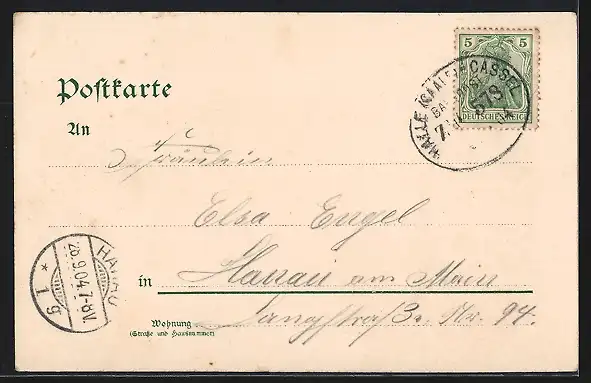 5 5
DEUTSCHES REICH
HALLE (SAALE) CASSEL
BAHNPOST
ZUG 573
Postkarte
An
Fräulein
Elsa Engel
in Hanau am Main
Langstraße Nr. 94.
Wohnung
(Straße und Hausnummer)
HANAU
26.9.04.7-8V.
* 1 g